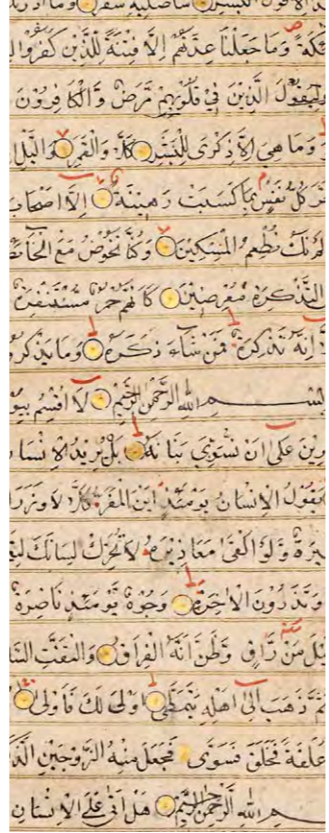 سَأُصْلِيهِ سَقَرَ وَمَا أَدْرَ
وَمَا جَعَلْنَا عِدَّتَهُمْ إِلَّا فِتْنَةً لِّلَّذِينَ كَفَرُوا
لِيَقُولَ الَّذِينَ فِي قُلُوبِهِم مَّرَضٌ وَّالْكَافِرُونَ
وَمَا هِيَ إِلَّا ذِكْرَى لِلْبَشَرِ كَلَّا وَالْقَمَرِ وَالَّيْلِ
كُلُّ نَفْسٍ بِمَا كَسَبَتْ رَهِينَةٌ إِلَّا أَصْحَابَ
نَكُ نُطْعِمُ الْمِسْكِينَ وَكُنَّا نَخُوضُ مَعَ الْخَائِضِ
التَّذْكِرَةِ مُعْرِضِينَ كَأَنَّهُمْ حُمُرٌ مُّسْتَنْفِرَةٌ
إِنَّهُ تَذْكِرَةٌ فَمَن شَاءَ ذَكَرَهُ وَمَا يَذْكُرُ
بِسْمِ اللهِ الرَّحْمَنِ الرَّحِيمِ لَا أُقْسِمُ بِيَوْ
رِينَ عَلَى أَنْ نُسَوِّيَ بَنَانَهُ بَلْ يُرِيدُ الْإِنْسَا
يَقُولُ الْإِنْسَانُ يَوْمَئِذٍ أَيْنَ الْمَفَرُّ كَلَّا لَا وَزَرَ
يرَةٌ وَّلَوْ أَلْقَى مَعَاذِيرَهُ لَا تُحَرِّكْ بِهِ لِسَانَكَ لِتَعْ
وَتَذَرُونَ الْآخِرَةَ وُجُوهٌ يَّوْمَئِذٍ نَاضِرَةٌ
مَنْ رَّاقٍ وَظَنَّ أَنَّهُ الْفِرَاقُ وَالْتَفَّتِ السَّا
ذَهَبَ إِلَى أَهْلِهِ يَتَمَطَّى أَوْلَى لَكَ فَأَوْلَى
عَلَقَةً فَخَلَقَ فَسَوَّى فَجَعَلَ مِنْهُ الزَّوْجَيْنِ الذَّ
اللهِ الرَّحْمَنِ الرَّحِيمِ هَلْ أَتَى عَلَى الْإِنْسَانِ